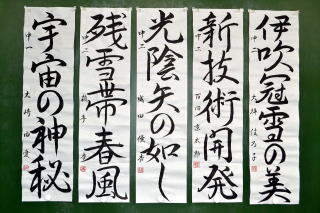 伊吹冠雪の美
中三
新技術開発
中三
光陰矢の如し
中二
残雪帯春風
中二
宇宙の神秘
中一